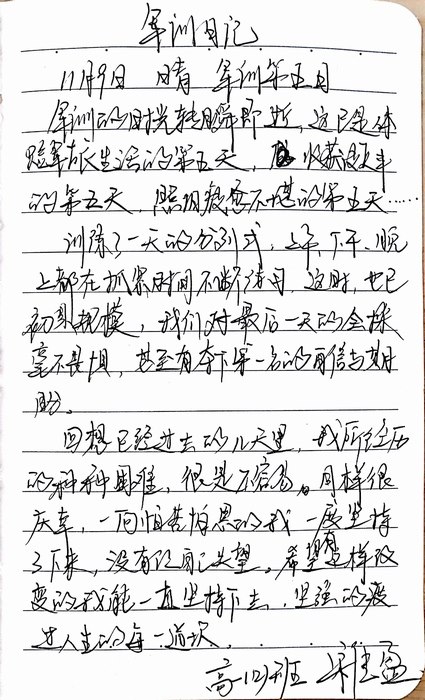 军训日记
11月9日 晴 军训第五日
军训的时光转瞬即逝，这已是体
验军旅生活的第五天，收获
的第五天，疲惫不堪的第五天……
训练了一天的分列式，上午、下午、晚
上都在抓紧时间不断练习，这时，也已
初具规模，我们对最后一天的会操
毫不畏惧，甚至有夺下第一名的自信与期
盼。
回想已经过去的几天里，我所经历
的种种困难，很是不容易，同样很
庆幸，一向怕苦怕累的我一度坚持
了下来，没有让自己失望。希望这样改
变的我能一直坚持下去，坚强的度
过人生的每一道坎。
高一